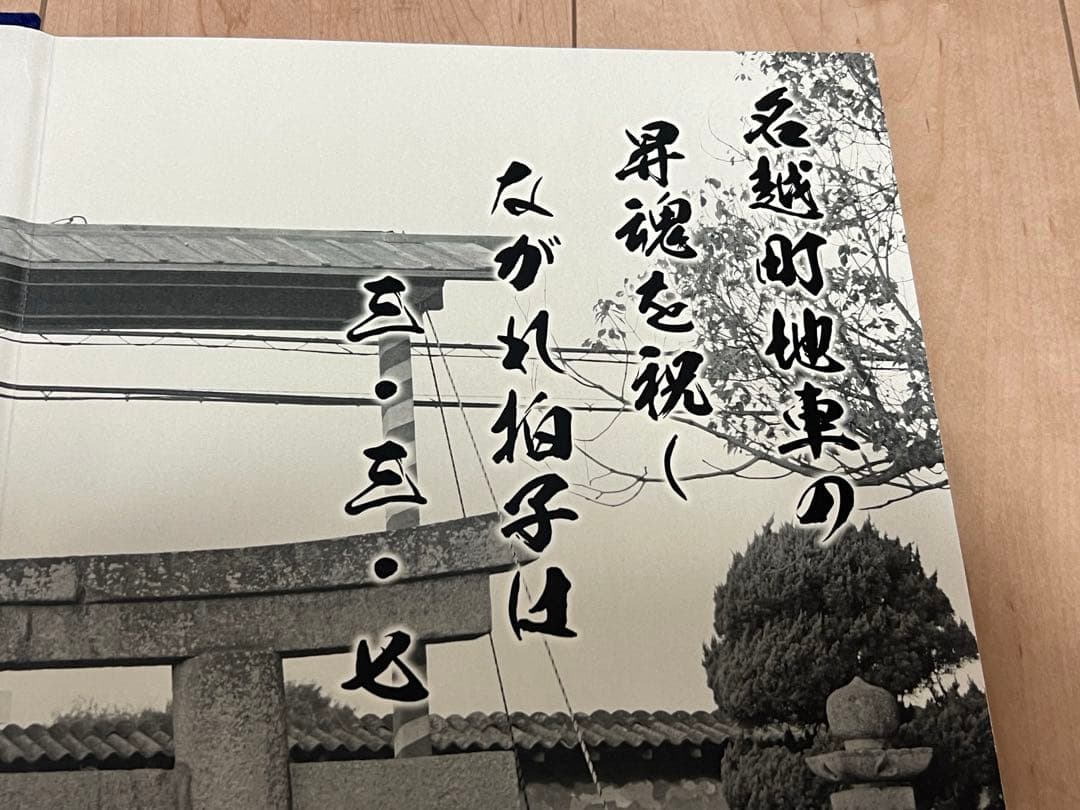 名越町地車の
昇魂を祝し
ながれ拍子は
三・三・七